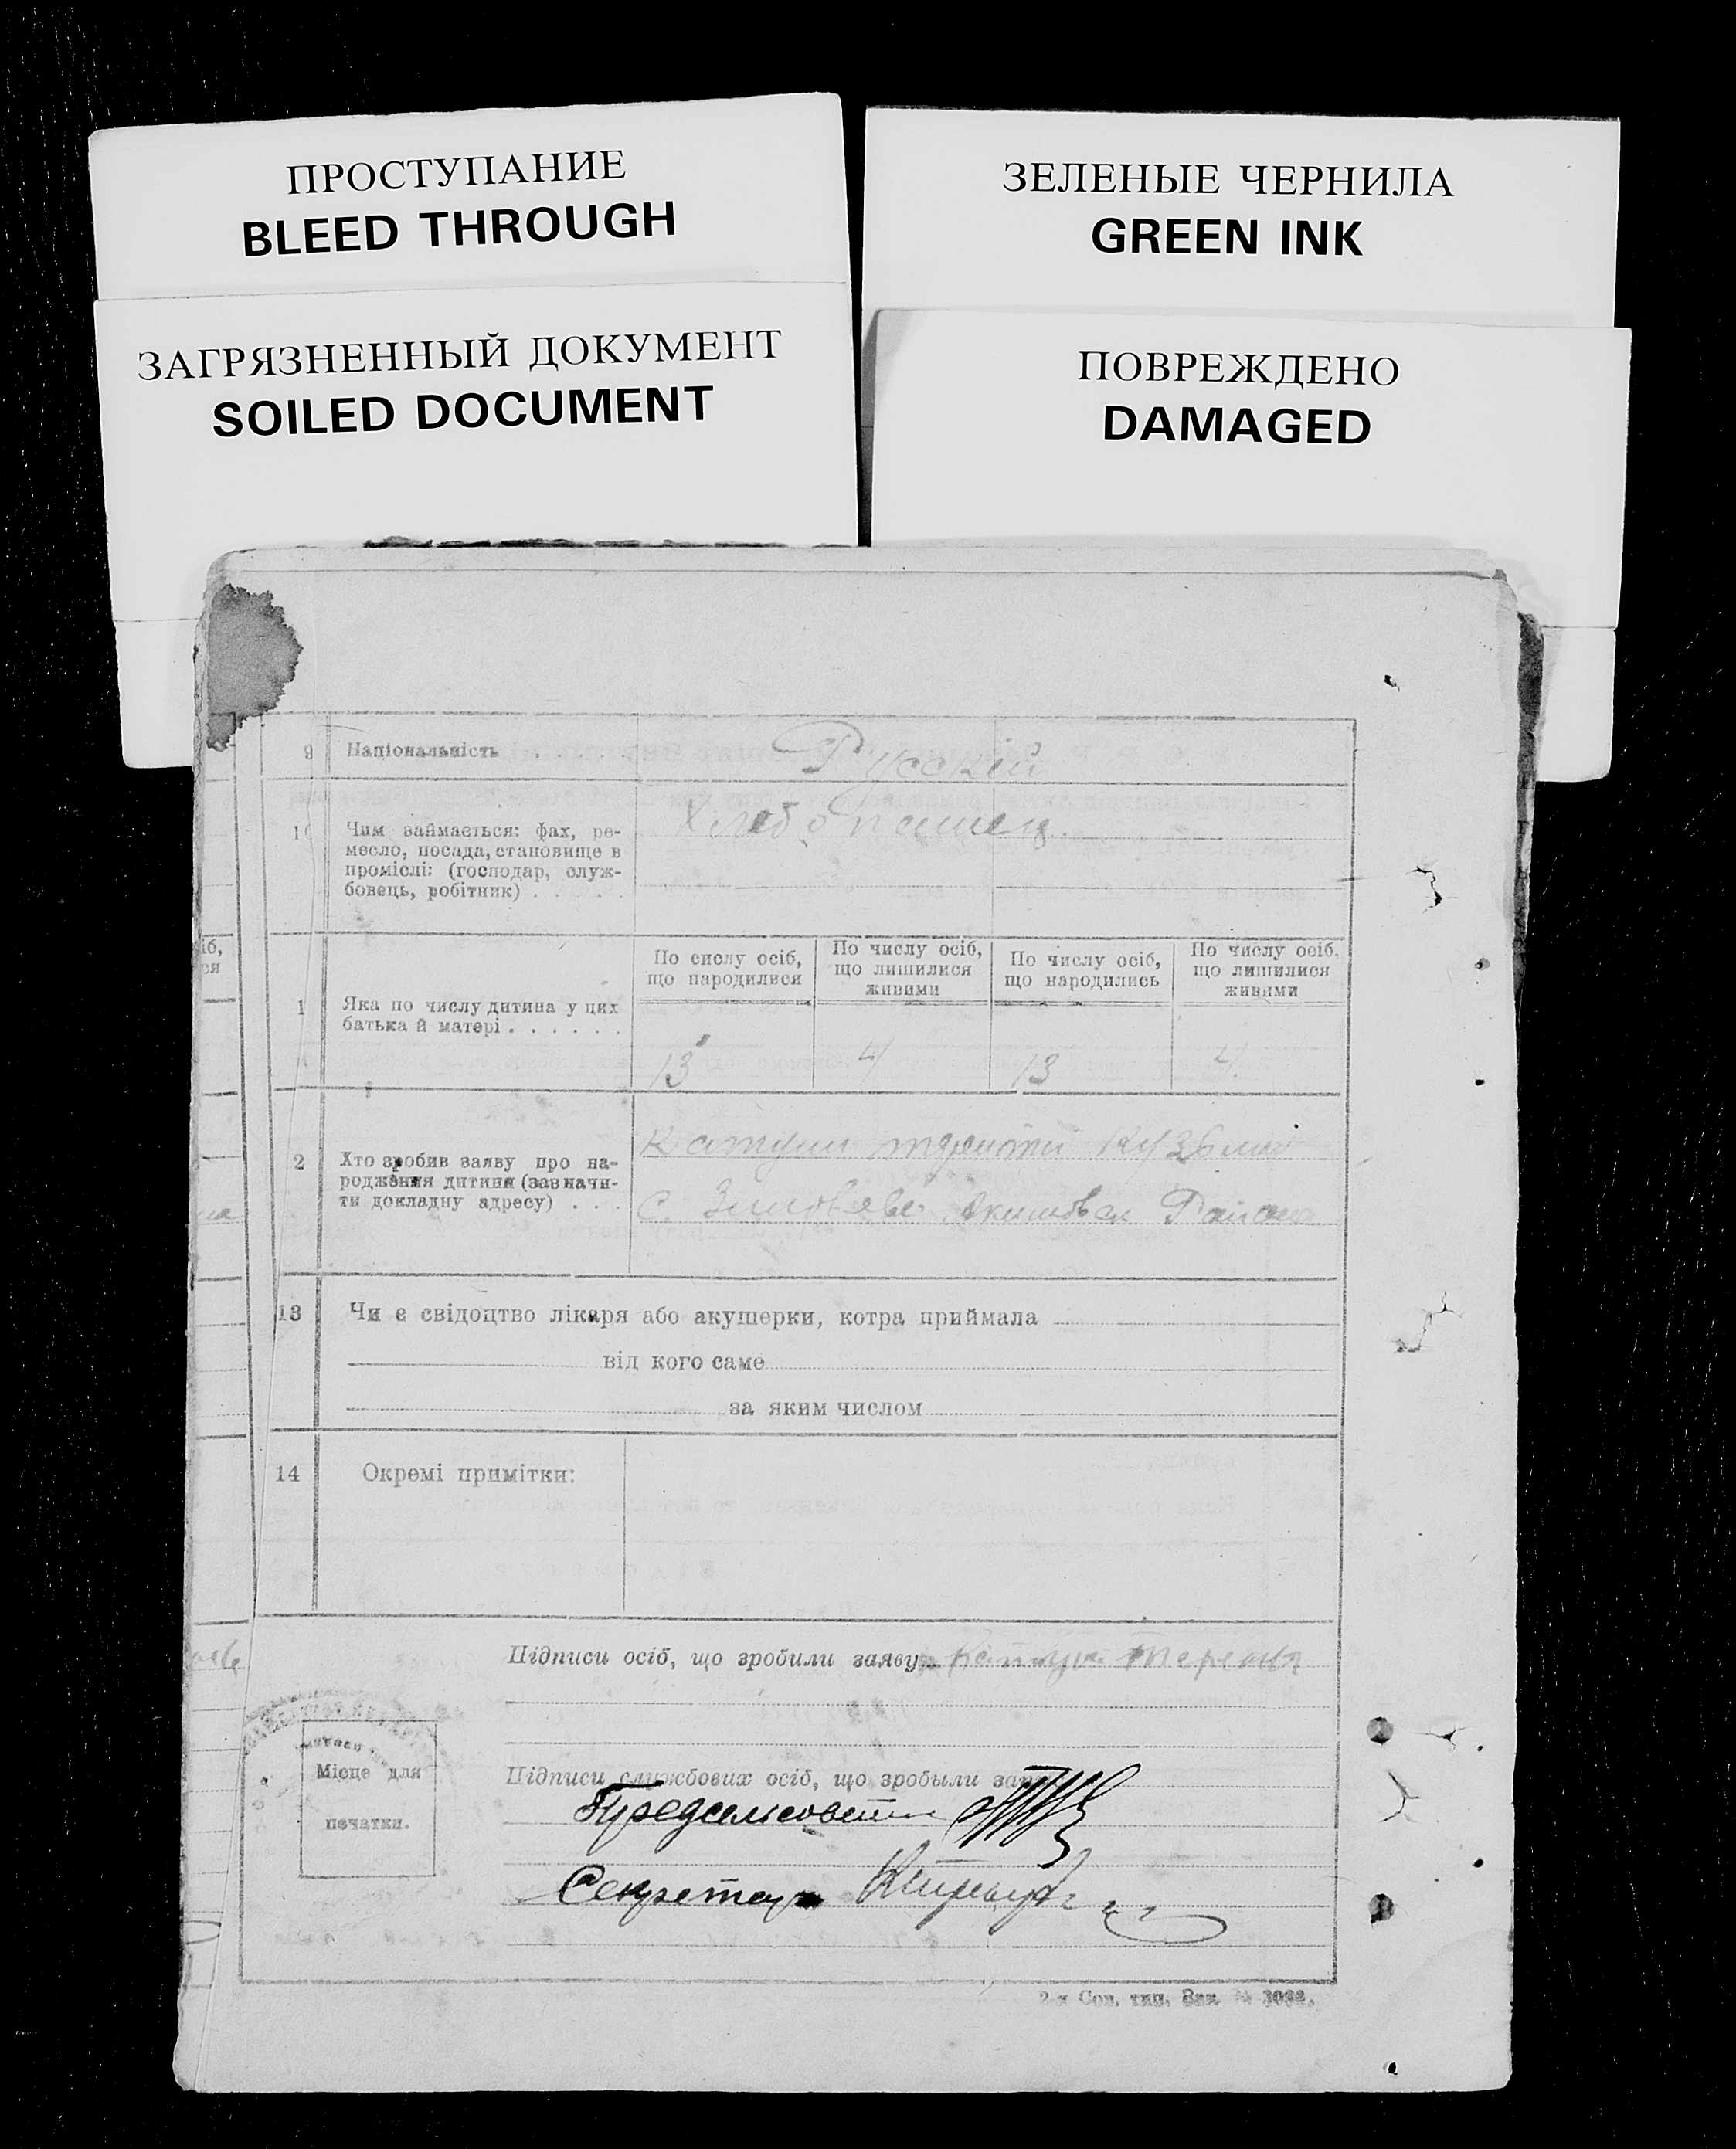 ПРОСТУПАНИЕ
BLEED THROUGH
ЗАГРЯЗНЕННЫЙ ДОКУМЕНТ
SOILED DOCUMENT
ЗЕЛЕНЫЕ ЧЕРНИЛА
GREEN INK
ПОВРЕЖДЕНО
DAMAGED
9 Національність . . . . Русскій
10 Чим займається: фах, ре-
месло, посада, становище в
промислі: (господар, служ-
бовець, робітник) . . . . .
Хлебопашец.
іб,
ся
1 Яка по числу дитина у цих
батька й матері . . . . . .
По сислу осіб,
що народилися
По числу осіб,
що лишилися
живими
По числу осіб,
що народились
По числу осіб,
що лишилися
живими
13 4 13 4
2 Хто зробив заяву про на-
родження дитини (зазначи-
ти докладну адресу) . . .
с. Акимовск Района
13 Чи є свідоцтво лікаря або акушерки, котра приймала
від кого саме
за яким числом
14 Окремі примітки:
Підписи осіб, що зробили заяву
Місце для
печатки.
Підписи службових осіб, що зробыли
Предсельсовета
Секретарь
2-я Сов. тип. Зак. №